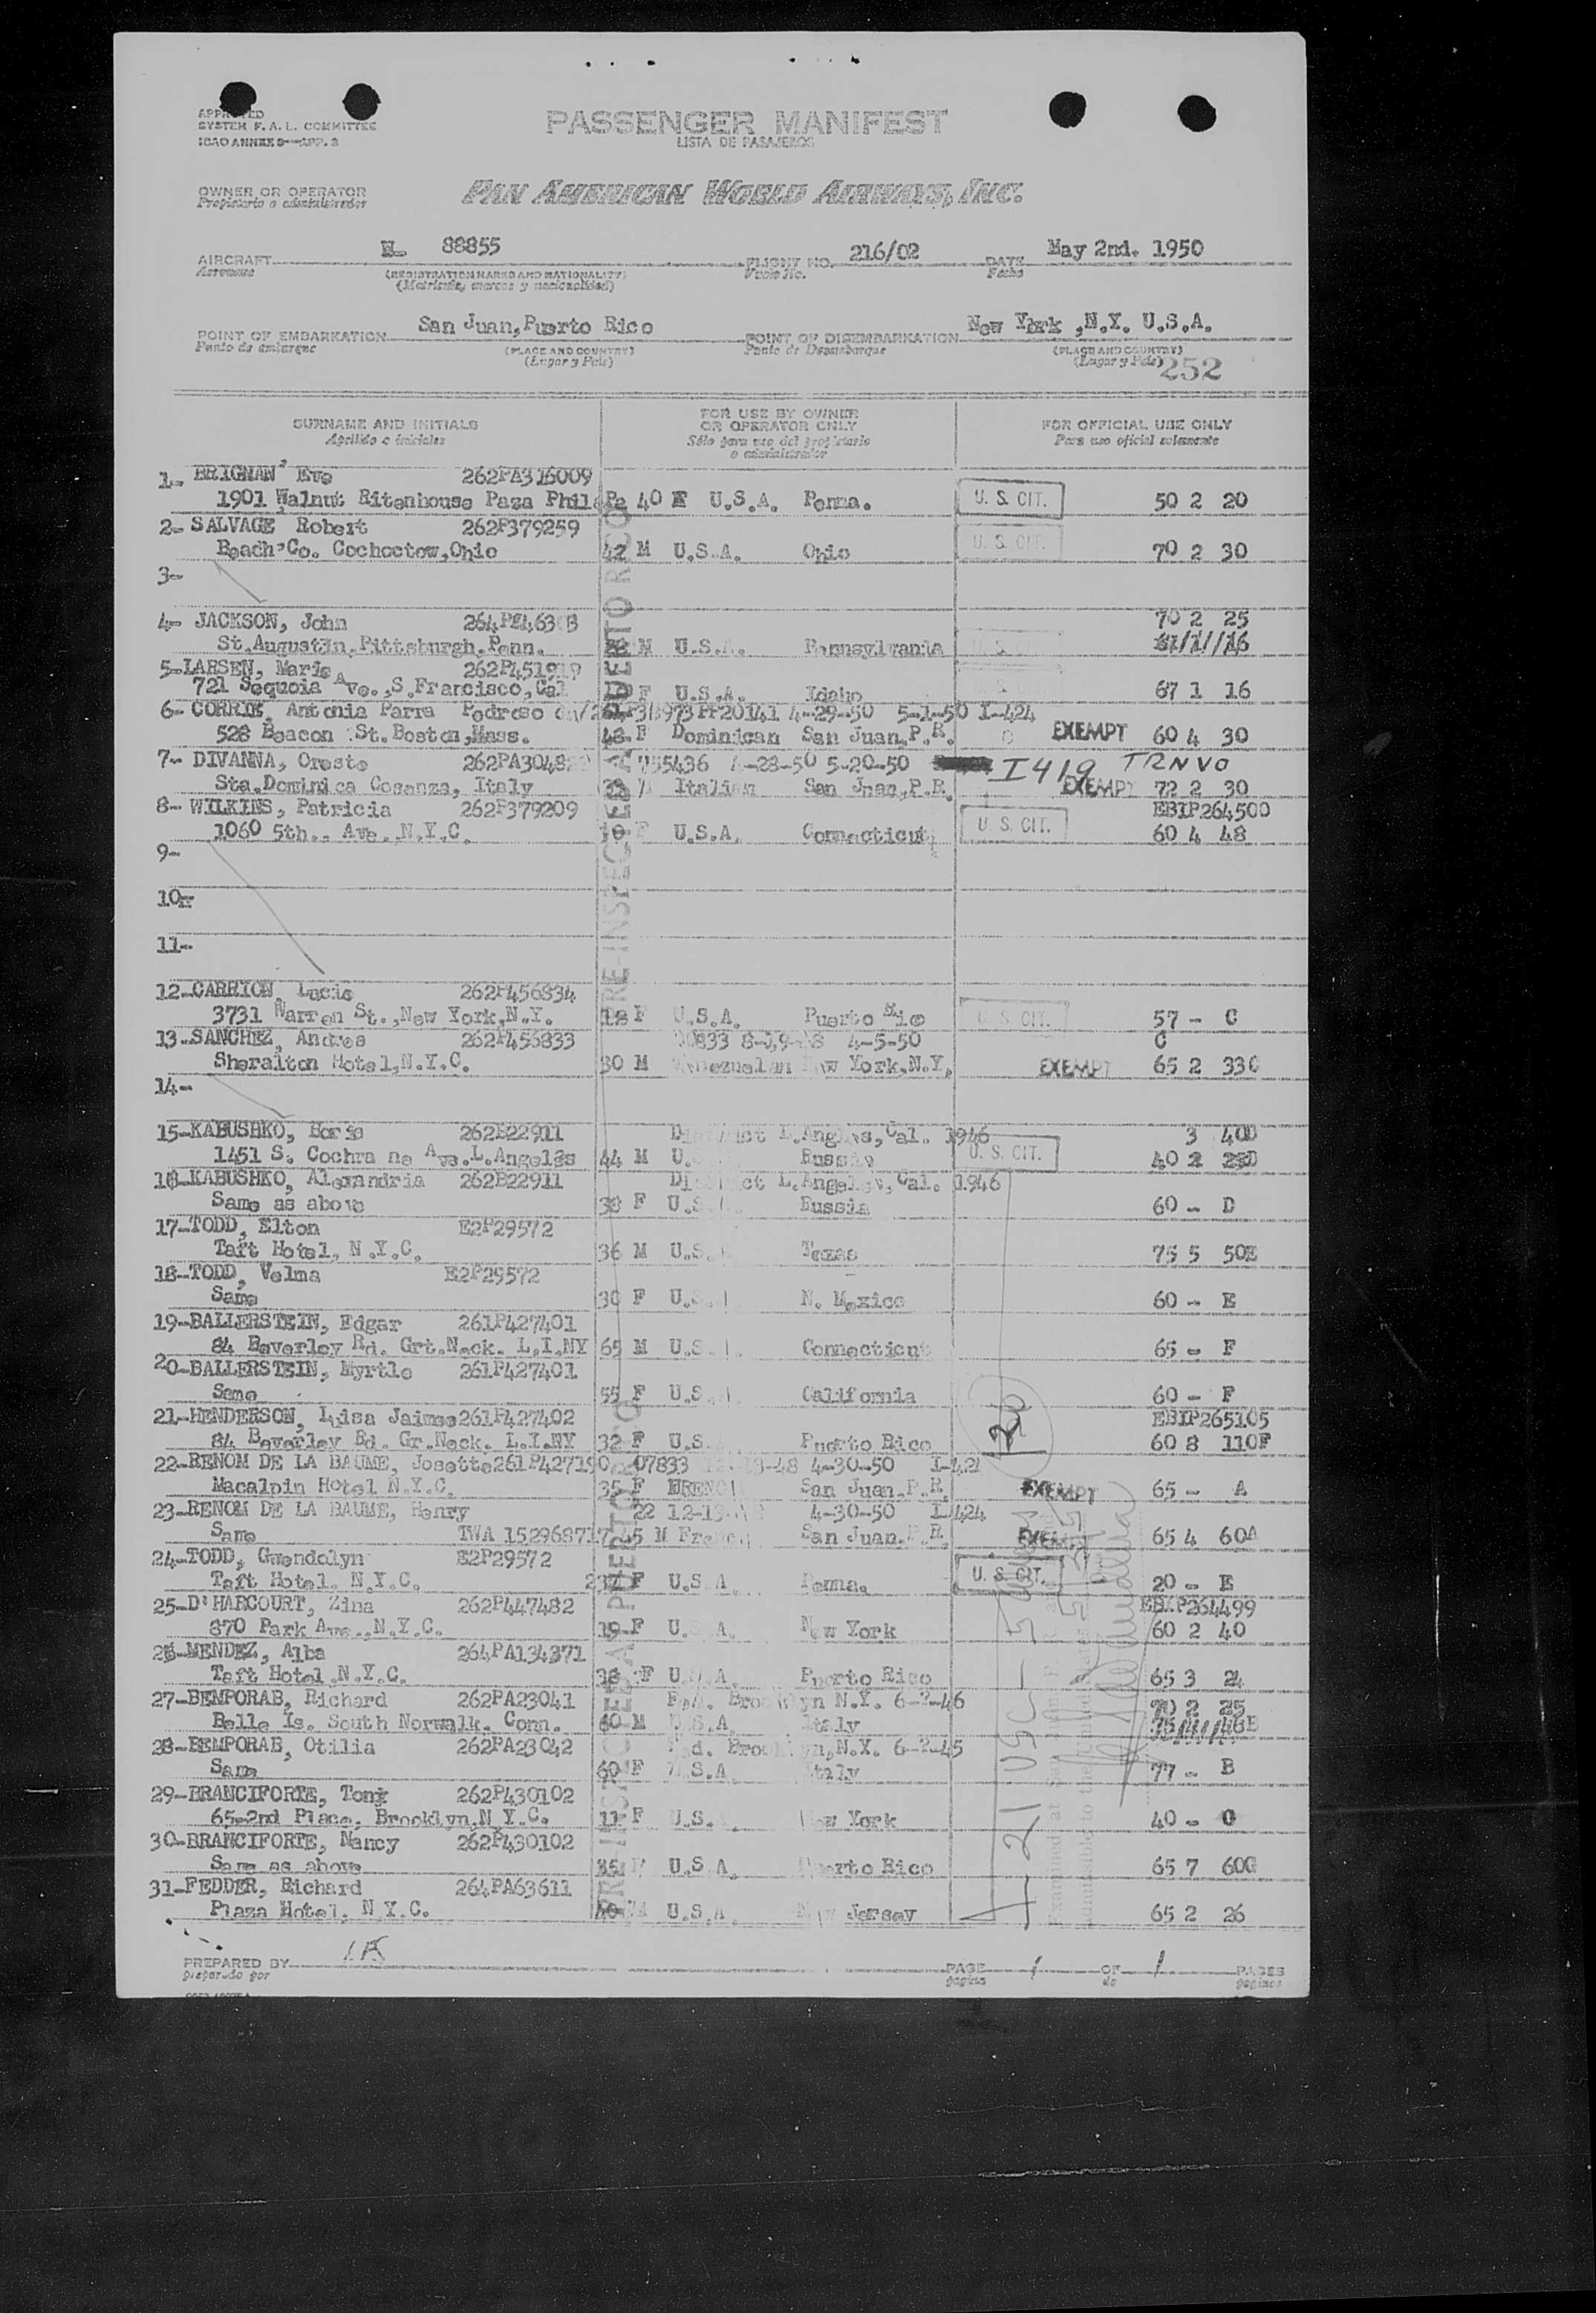 APPROVED
SYSTEM F.A.L. COMMITTEE
ICAO ANNEX 9—APP. 3
PASSENGER MANIFEST
LISTA DE PASAJEROS
OWNER OR OPERATOR
Propietario o administrador
PAN AMERICAN WORLD AIRWAYS, INC.
AIRCRAFT N- 88855 FLIGHT NO. 216/02 DATE May 2nd. 1950
Aeronave (REGISTRATION MARKS AND NATIONALITY) Vuelo No. Fecha
(Matrícula, marcas y nacionalidad)
POINT OF EMBARKATION San Juan,Puerto Rico POINT OF DISEMBARKATION New York ,N.Y. U.S.A.
Punto de embarque (PLACE AND COUNTRY) Punto de Desembarque (PLACE AND COUNTRY)
(Lugar y País) (Lugar y País) 252
SURNAME AND INITIALS FOR USE BY OWNER OR OPERATOR ONLY FOR OFFICIAL USE ONLY
Apellido e iniciales Sólo para uso del propietario o administrador Para uso oficial solamente
1- BRIGMAN Eve 262PA316009
1901 Walnut Ritenhouse Paza Phil Pa 40 F U.S.A. Penna. U. S. CIT. 50 2 20
2- SALVAGE Robert 262P379259
Beach Co. Cochoctow,Ohio 42 M U.S.A. Ohio U. S. CIT. 70 2 30
3-
4- JACKSON, John 70 2 25
St.Augustin.Pittsburgh.Penn. M U.S.A. Pennsylvania
5-LARSEN, Marie
721 Sequoia Ave.,S.Francisco,Cal F U.S.A. Idaho 67 1 16
6- CORRIE, Antonia Parra Pedroso 4-29-50 5-1-50 I-424
528 Beacon St.Boston,Mass. 48 F Dominican San Juan.P.R. EXEMPT 60 4 30
7- DIVANNA, Oreste 755436 4-28-50 5-20-50 I419 TRNVO
Sta.Dominica Cosanza, Italy Italian San Juan,P.R. EXEMPT 72 2 30
8- WILKINS, Patricia 262P379209 EBIP264500
1060 5th.. Ave. N.Y.C. F U.S.A. Connecticut U. S. CIT. 60 4 48
9-
10-
11-
12-CARRION, Lucia 262P456834
3731 Warren St.,New York,N.Y. 18 F U.S.A. Puerto Rico U. S. CIT. 57 - C
13-SANCHEZ, Andres 262P456833 4-5-50 C
Sheraiton Hotel,N.Y.C. 30 M Venezuelan New York.N.Y. EXEMPT 65 2 33C
14-
15-KABUSHKO, Boris 262B22911 District L.Angles,Cal. 1946 3 40D
1451 S. Cochra ne Ave.L.Angeles 44 M U.S.A. Russia U. S. CIT. 40 2
16-KABUSHKO, Alexandria 262B22911 District L.Angeles,Cal. 1946
Same as above 38 F U.S.A. Russia 60 - D
17-TODD, Elton E2P29572
Taft Hotel, N.Y.C. 36 M U.S.A. Texas 75 5 50E
18-TODD, Velma E2P29572
Same 30 F U.S.A. N. Mexico 60 - E
19-BALLERSTEIN, Edgar 261P427401
84 Beverley Rd. Grt.Neck. L.I.NY 65 M U.S.A. Connecticut 65 - F
20-BALLERSTEIN, Myrtle 261P427401
Same 55 F U.S.A. California 60 - F
21-HENDERSON, Luisa Jaimes261P427402 EBIP265105
84 Beverley Rd. Gr.Neck. L.I.NY 32 F U.S.A. Puerto Rico 60 8 110F
22-RENOM DE LA BAUME, Josette 07833 4-30-50 I-424
Macalpin Hotel N.Y.C. 35 F FRENCH San Juan.P.R. EXEMPT 65 - A
23-RENOM DE LA BAUME, Henry 4-30-50 I-424
Same TWA 152968717 45 M French San Juan.P.R. EXEMPT 65 4 60A
24-TODD, Gwendolyn E2P29572
Taft Hotel. N.Y.C. F U.S.A. Penna. U. S. CIT. 20 - E
25-D'HARCOURT, Zina 262P447482 EBIP264499
870 Park Ave.,N.Y.C. 19 F U.S.A. New York 60 2 40
26-MENDEZ, Alba 264PA134371
Taft Hotel N.Y.C. 38 F U.S.A. Puerto Rico 65 3 24
27-BEMPORAB, Richard 262PA23041 Fed. Brooklyn N.Y. 6-?-46 70 2 25
Belle Is. South Norwalk. Conn. 60 M U.S.A. Italy
28-BEMPORAB, Otilia 262PA23042 Fed. Brooklyn,N.Y. 6-?-45
Same 60 F U.S.A. Italy 77 - B
29-BRANCIFORTE, Tony 262P430102
65-2nd Place, Brooklyn,N.Y.C. 11 F U.S. New York 40 - G
30-BRANCIFORTE, Nancy 262P430102
Same as above 35 F U.S.A. Puerto Rico 65 7 60G
31-FEDDER, Richard 264PA63611
Plaza Hotel, N.Y.C. U.S.A. New Jersey 65 2 26
I-21 USC-5
PREPARED BY PAGE 1 OF 1 PAGES
preparado por pagina de paginas